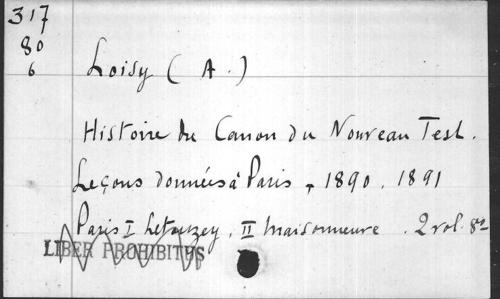 317
80
6
Loisy ( A . )
Histoire du Canon du Nouveau Test.
Leçons données à Paris , 1890 . 1891
Paris I Letouzey . II Maisonneuve . 2 vol. 8º
LIBER PROHIBITUS